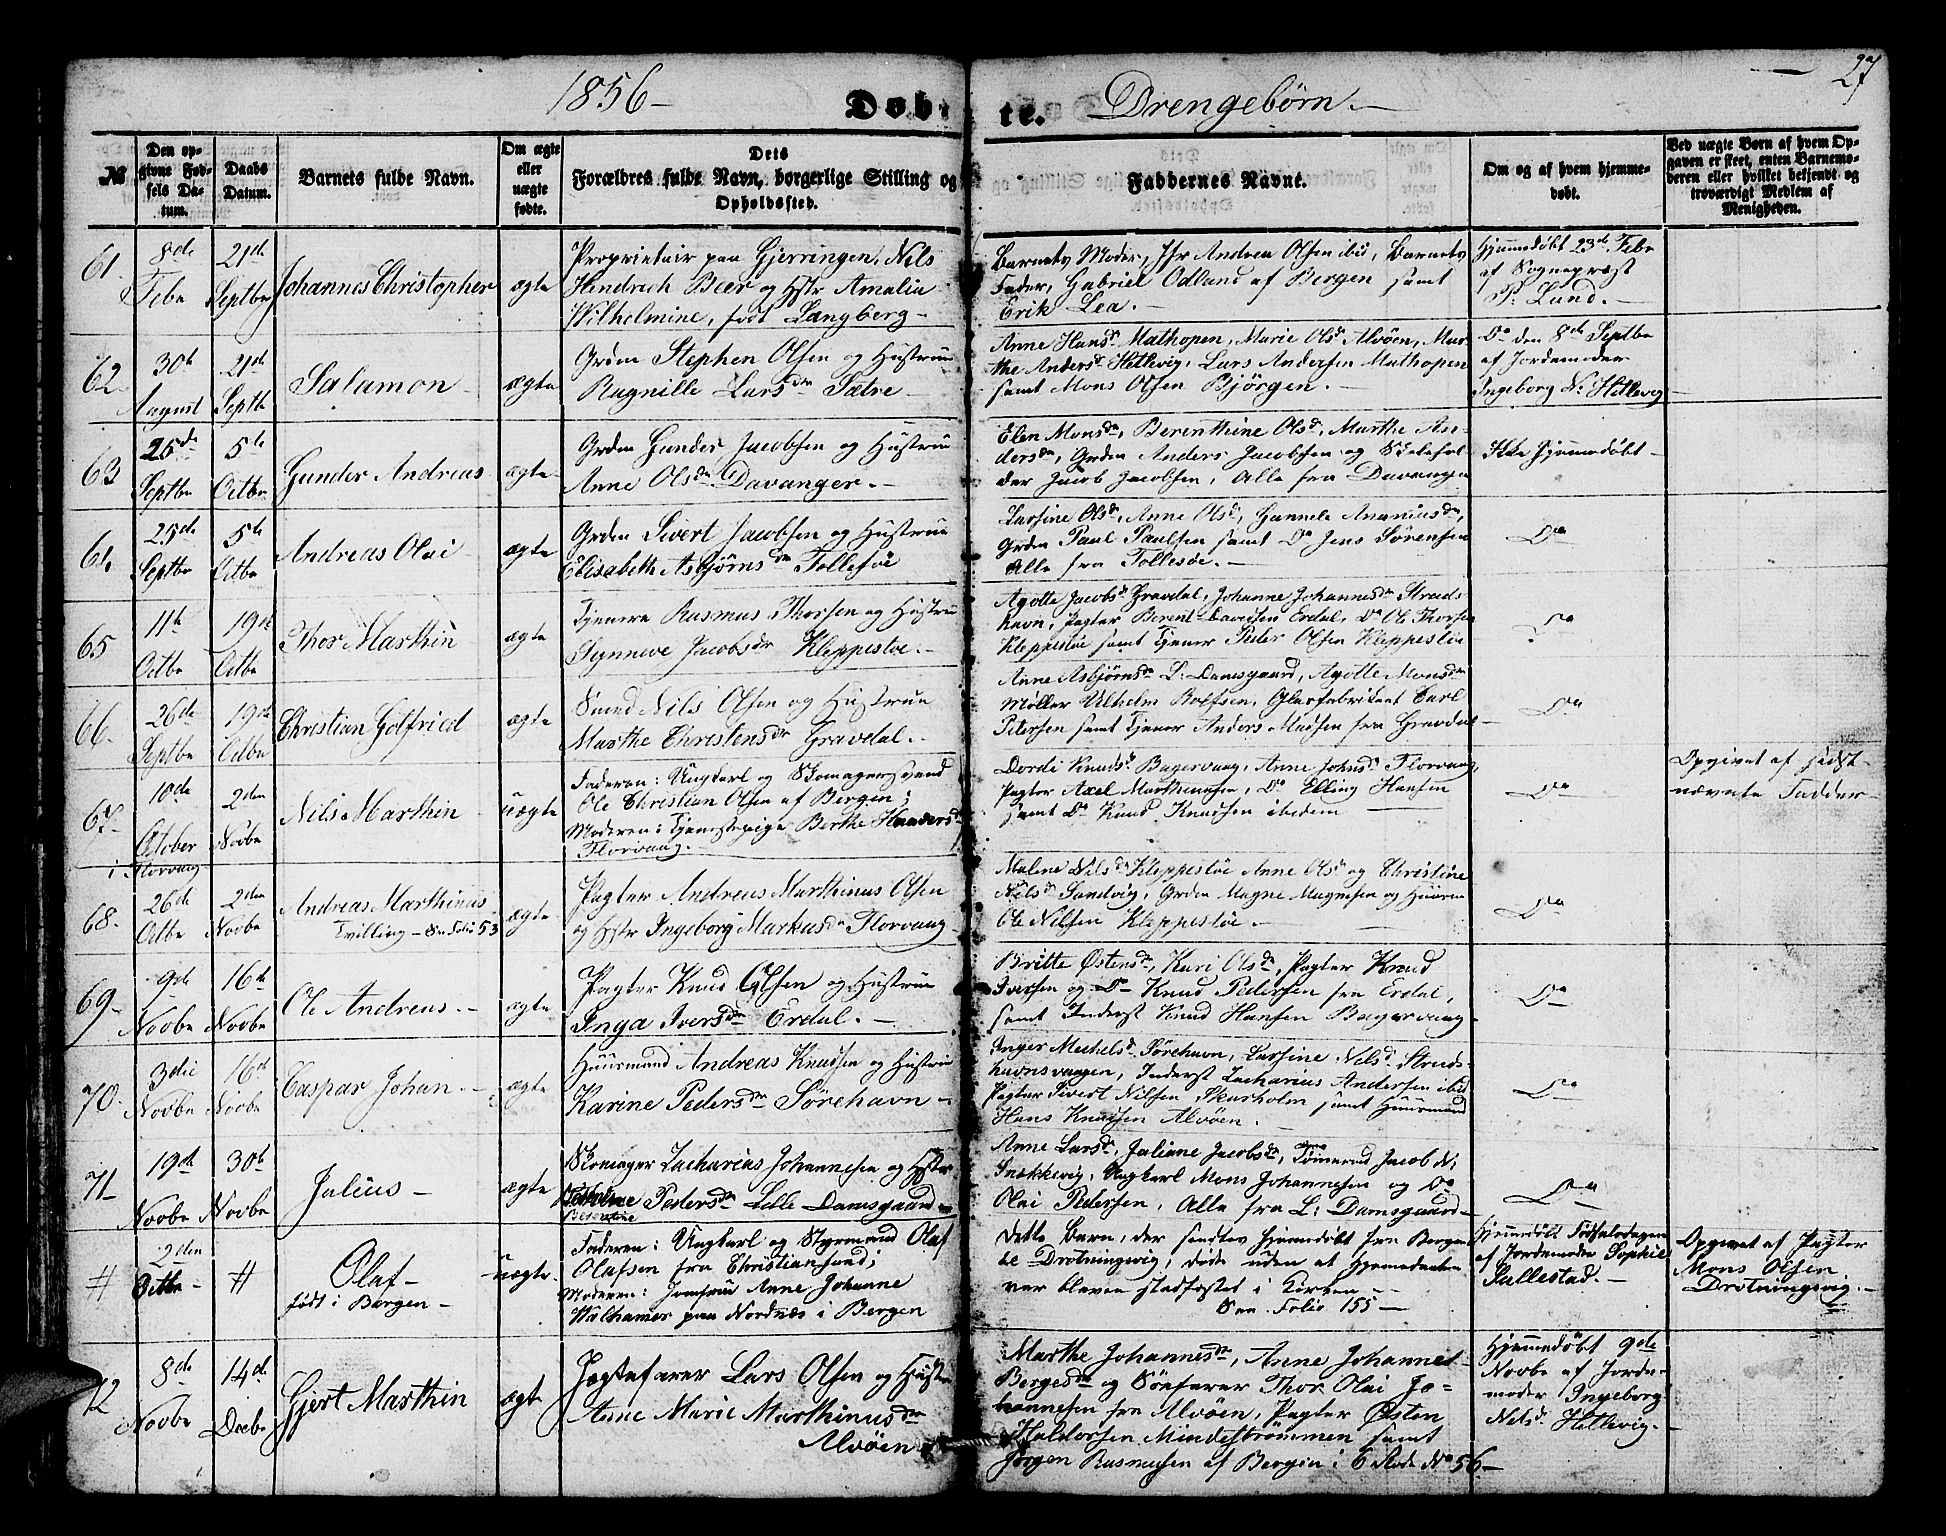 1856 - Døb- te. Drengebørn. - 27
№
Den op-
givne Fød-
sels Da-
tum.
Daabs
Datum.
Barnets fulde Navn.
Om ægte
eller
uægte
fødte.
Dets
Forældres fulde Navn, borgerlige Stilling og
Opholdssted.
Faddernes Navne.
Om og af hvem hjemme-
døbt.
Ved uægte Børn af hvem Op-
gaven er skeet, enten Barnemo-
deren eller hvilket bekjendt og
troværdigt Medlem af
Menigheden.
61.
8de
Febr
21de
Septbr
Johannes Christopher
ægte
Proprietair paa Gjerringen, Nils
Hindrich Beer og Hstr Amalia
Wilhelmine, født Langberg -
Barnets Moder, Jfr Andrea Olsen ibid, Barnets
Fader, Gabriel Odland af Bergen samt
Erik Lea. -
Hjemmedøbt 23de Febr
af Sognepræst
Lund. -
62.
30te
August
21de
Septbr
Salamon -
ægte
Grdm Stephen Olsen og Hustrue
Ragnille Larsdr Sætre -
Anne Hansdr Mathopen, Marie Olsdr Alvøen, Mar-
the Andersdr Hetlevig, Lars Andersen Mathopen
samt Mons Olsen Bjørgen. -
Do den 8de Septbr
af Jordemoder
Ingeborg N: Hetlevig
63
25de
Septbr
5te
Octbr
Gunder Andreas
ægte
Grdm Gunder Jacobsen og Hustrue
Anne Olsdr Davanger. -
Elen Monsdr, Berenthine Olsdr, Marthe An-
dersdr, Grdm Anders Jacobsen og Skolehol-
der Jacob Jacobsen, Alle fra Davanger
Ikke Hjemmedøbt -
64.
25de
Septbr
5te
Octbr
Andreas Olai -
ægte
Grdm Sivert Jacobsen og Hustrue
Elisabeth Asbjørnsdr Follesøe
Larsine Olsdr, Anne Olsdr, Gunnele Ananiasdr,
Grdm Paul Paulsen samt Do Jens Sørensen
Alle fra Follesøe. -
Do
65
11te
Octbr
19de
Octbr
Thor Marthin
ægte
Tjenere Rasmus Thorsen og Hustrue
Synneve Jacobsdr Kleppestøe. -
Agothe Jacobsdr Gravdal, Johanne Johannesdr Struds-
havn, Pagter Berent Davidsen Erdal, Do Ole Thorsen
Kleppestøe samt Tjener Peder Olsen Kleppestøe
Do
66.
26de
Septbr
19de
Octbr
Christian Gotfried
ægte
Smed Nils Olsen og Hustrue
Marthe Christensdr Gravdal. -
Anne Asbjørnsdr L: Damsgaard, Agothe Monsdr
Møller Vilhelm Rolfsen, Glasfabrikant Carl
Petersen samt Tjener Anders Madsen fra Gravdal -
Do
67.
10de
October
i Florvaag
2den
Novbr
Nils Marthin
uægte
Faderen: Ungkarl og Skomagersvend
Ole Christian Olsen af Bergen;
Moderen: Tjenestepige Berthe Haandersdr
Florvaag.
Dordi Knudsdr Bagervaag, Anne Johnsdr Florvaag,
Pagter Axel Marthinussen, Do Elling Hansen
samt Do Knud Knudsen ibedem
Do
Opgivet af sidst-
nævnte Fadder -
68.
26de
Octbr
2den
Novbr
Andreas Marthinus
Tvilling - See Folio 53
ægte
Pagter Andreas Marthinus Olsen
og Hstr Ingeborg Markusdr Florvaag -
Malene Nilsdr Kleppestøe Anne Olsdr og Christine
Nilsdr Sandvig, Grdm Magne Magnesen og Huusm
Ole Nilsen Kleppestøe. -
Do
69.
9de
Novbr
16de
Novbr
Ole Andreas. -
ægte
Pagter Knud Olsen og Hustrue
Inga Iversdr Erdal. -
Britte Østensdr, Kari Olsdr, Pagter Knud
Iversen og Do Knud Pedersen fra Erdal,
samt Inderst Knud Hansen Bagervaag
Do
70.
3die
Novbr
16de
Novbr
Caspar Johan. -
ægte
Huusmand Andreas Knudsen og Hustrue
Karine Pedersdr Sørehavn -
Inger Michelsdr Sørehavn, Larsine Nilsdr Struds-
havnsvaagen, Inderst Zacharias Andersen ibid
Pagter Sivert Nilsen Skarholm samt Huusmand
Hans Knudsen Alvøen. -
Do
71.
19de
Novbr
30te
Novbr
Julius -
ægte
Skomager Zacharias Johannesen og Hstr
Pedersdr Lille Damsgaard -
Berentine
Anne Larsdr, Juliane Jacobsdr, Tømmermd Jacob N:
Snekkevig, Ungkarl Mons Johannesen og Do
Olai Pedersen, Alle fra L: Damsgaard -
Do
#
2den
Octbr -
#
Olaf -
født i Bergen -
uægte
Faderen: Ungkarl og Styrmand Olaf
Olafsen fra Christiansund;
Moderen: Jomfrue Anne Johanne
Walhamer paa Nordnæs i Bergen
Dette Barn, der sendtes hjemmedøbt fra Bergen
til Drotningvig, døde uden at Hjemmedaaben
var bleven stadfæstet i Kirken -
See Folio 155 -
Hjemmedøbt Fødselsdagen
af Jordemoder Sophie
Sallestad. -
Opgivet af Pagter
Mons Olsen
Drotningsvig. -
72
8de
Novbr
14de
Decbr
Gjert Marthin
ægte
Jægtefarer Lars Olsen og Hustr
Anne Marie Marthinusdr
Alvøen
Marthe Johannesdr, Anne Johannes-
Bergesdr og Søefarer Thor Olai Jo-
hannesen fra Alvøen, Pagter Østen
Haldorsen Mindestrømmen samt
Jørgen Rasmusen af Bergen i 6 Rode No 56 -
Hjemmedøbt 9de
Novbr af Jorde-
moder Ingeborg
Nilsdr Hetlevig. -